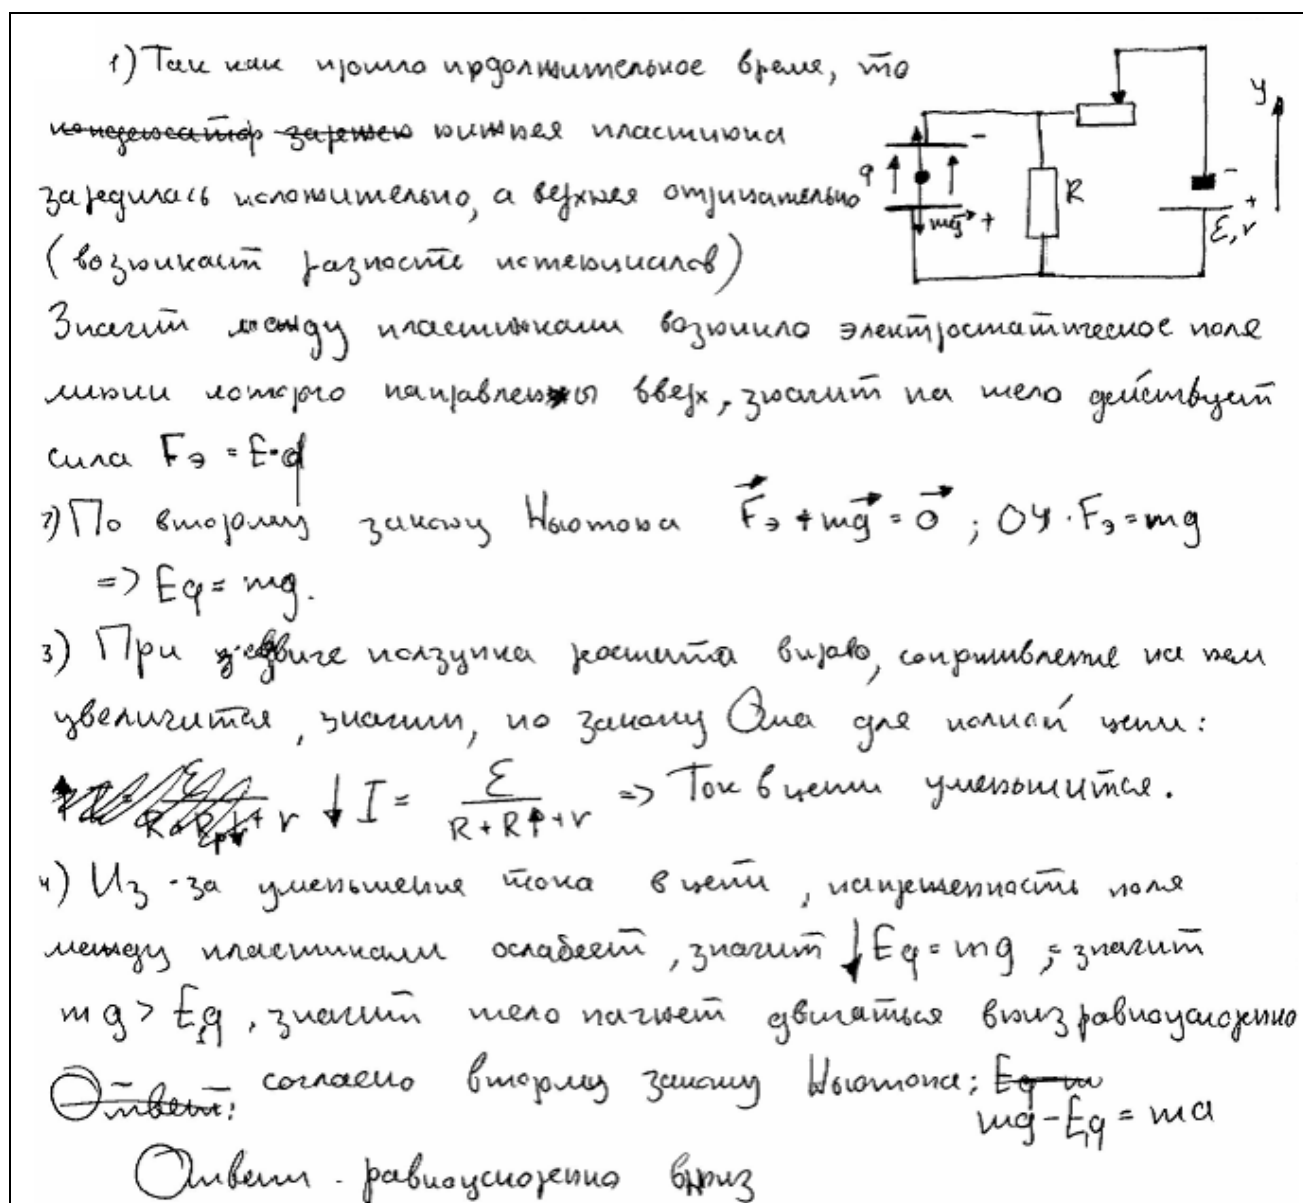 1) Так как прошло продолжительное время, то
конденсатор заряжен нижняя пластина
зарядилась положительно, а верхняя отрицательно
(возникает разность потенциалов)
q
-
mg +
R
-
+
ε, r
y
Значит между пластинками возникло электростатическое поле
линии которого направлены вверх, значит на тело действует
сила Fэ = E·q
2) По второму закону Ньютона Fэ + mg = 0 ; OY: Fэ = mg
=> Eq = mg.
3) При сдвиге ползунка реостата вправо, сопротивление на нем
увеличится, значит, по закону Ома для полной цепи:
↓ I = ε / (R + R↑ + r) => Ток в цепи уменьшится.
4) Из-за уменьшения тока в цепи, напряженность поля
между пластинками ослабеет, значит ↓ Eq = mg ; значит
mg > E₁q, значит тело начнет двигаться вниз равноускоренно
Ответ: согласно второму закону Ньютона: Eq - m
mg - E₁q = ma
Ответ. равноускоренно вниз